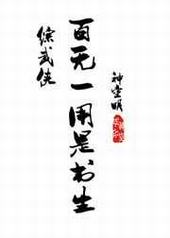 综武侠
百无一用是书生
神尘明